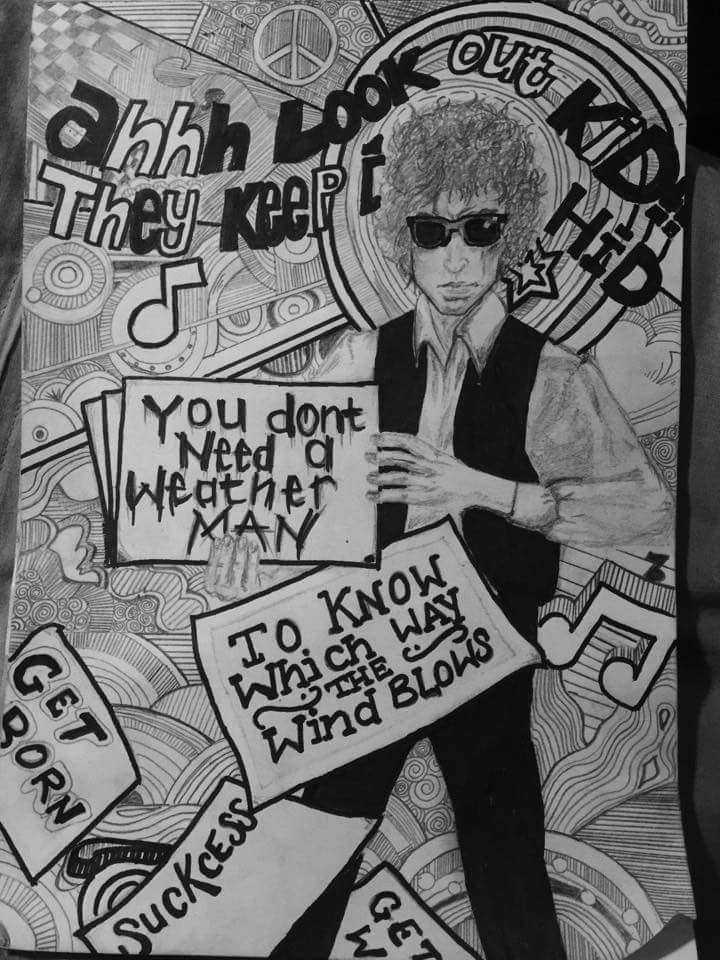 ahhh LOOK Out KiD
They KeeP it HiD
You dont
Need a
Weather
MAN
TO KNOW
Which WAY
THE
Wind BLOWS
GET
BORN
SucKcess
GET
W